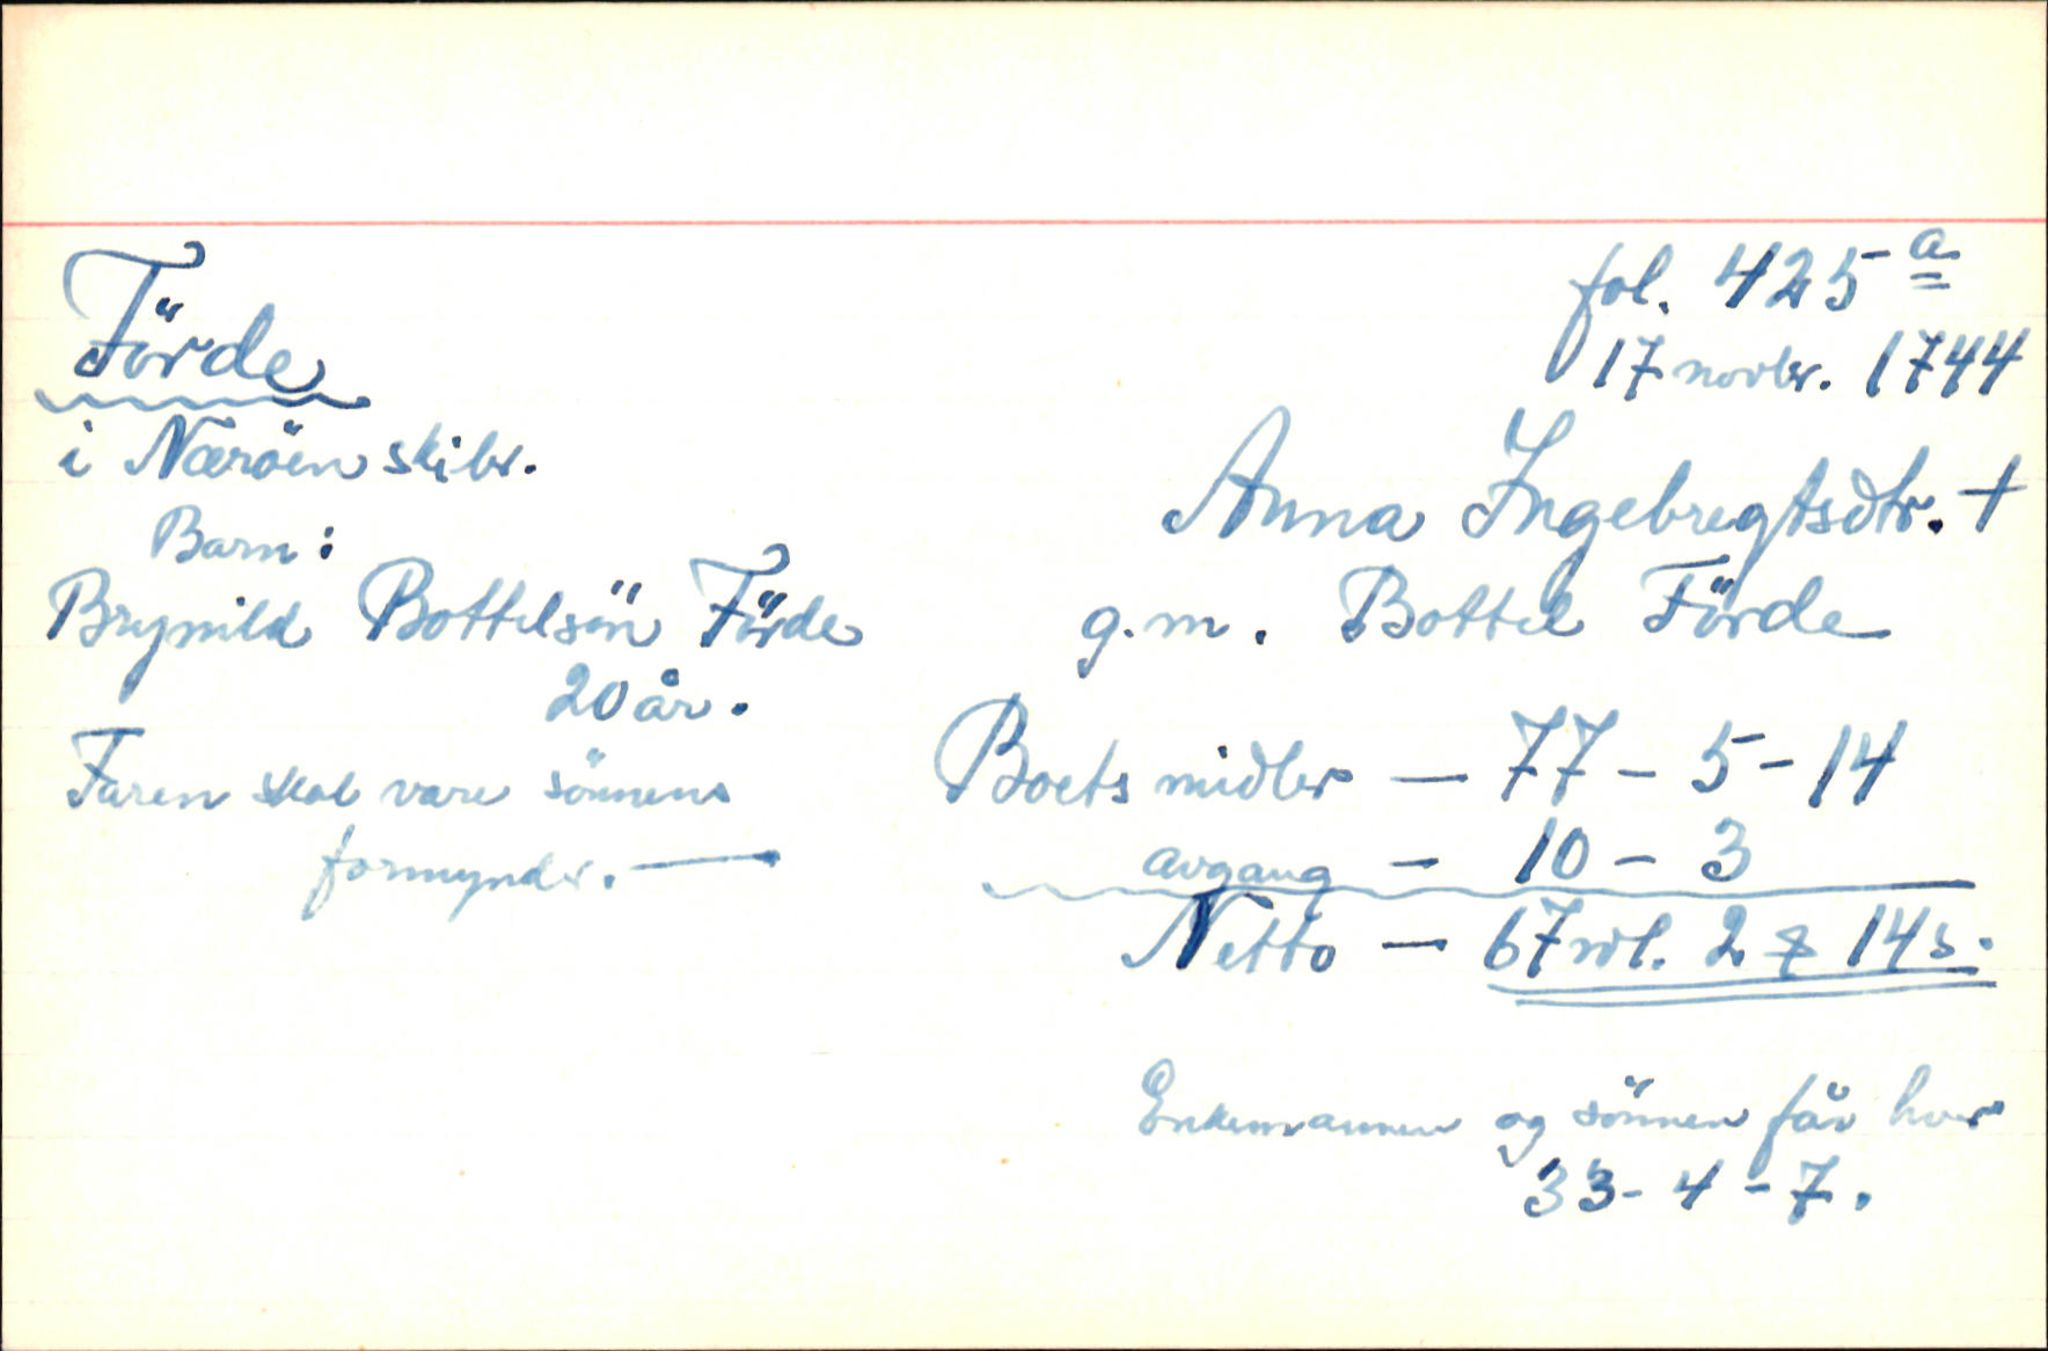 Förde
i Næröen skibr.
Barn:
Brynild Bottelsön Förde
20 år.
Faren skal være sönnens
formynder.
fol. 425 a
17 novbr. 1744
Anna Ingebregtsdtr. +
g.m. Bottel Förde
Boets midler — 77 - 5 - 14
avgang — 10 - 3
Netto — 67 rdl. 2 14 s.
Enkemannen og sönnen får hver
33 - 4 - 7.